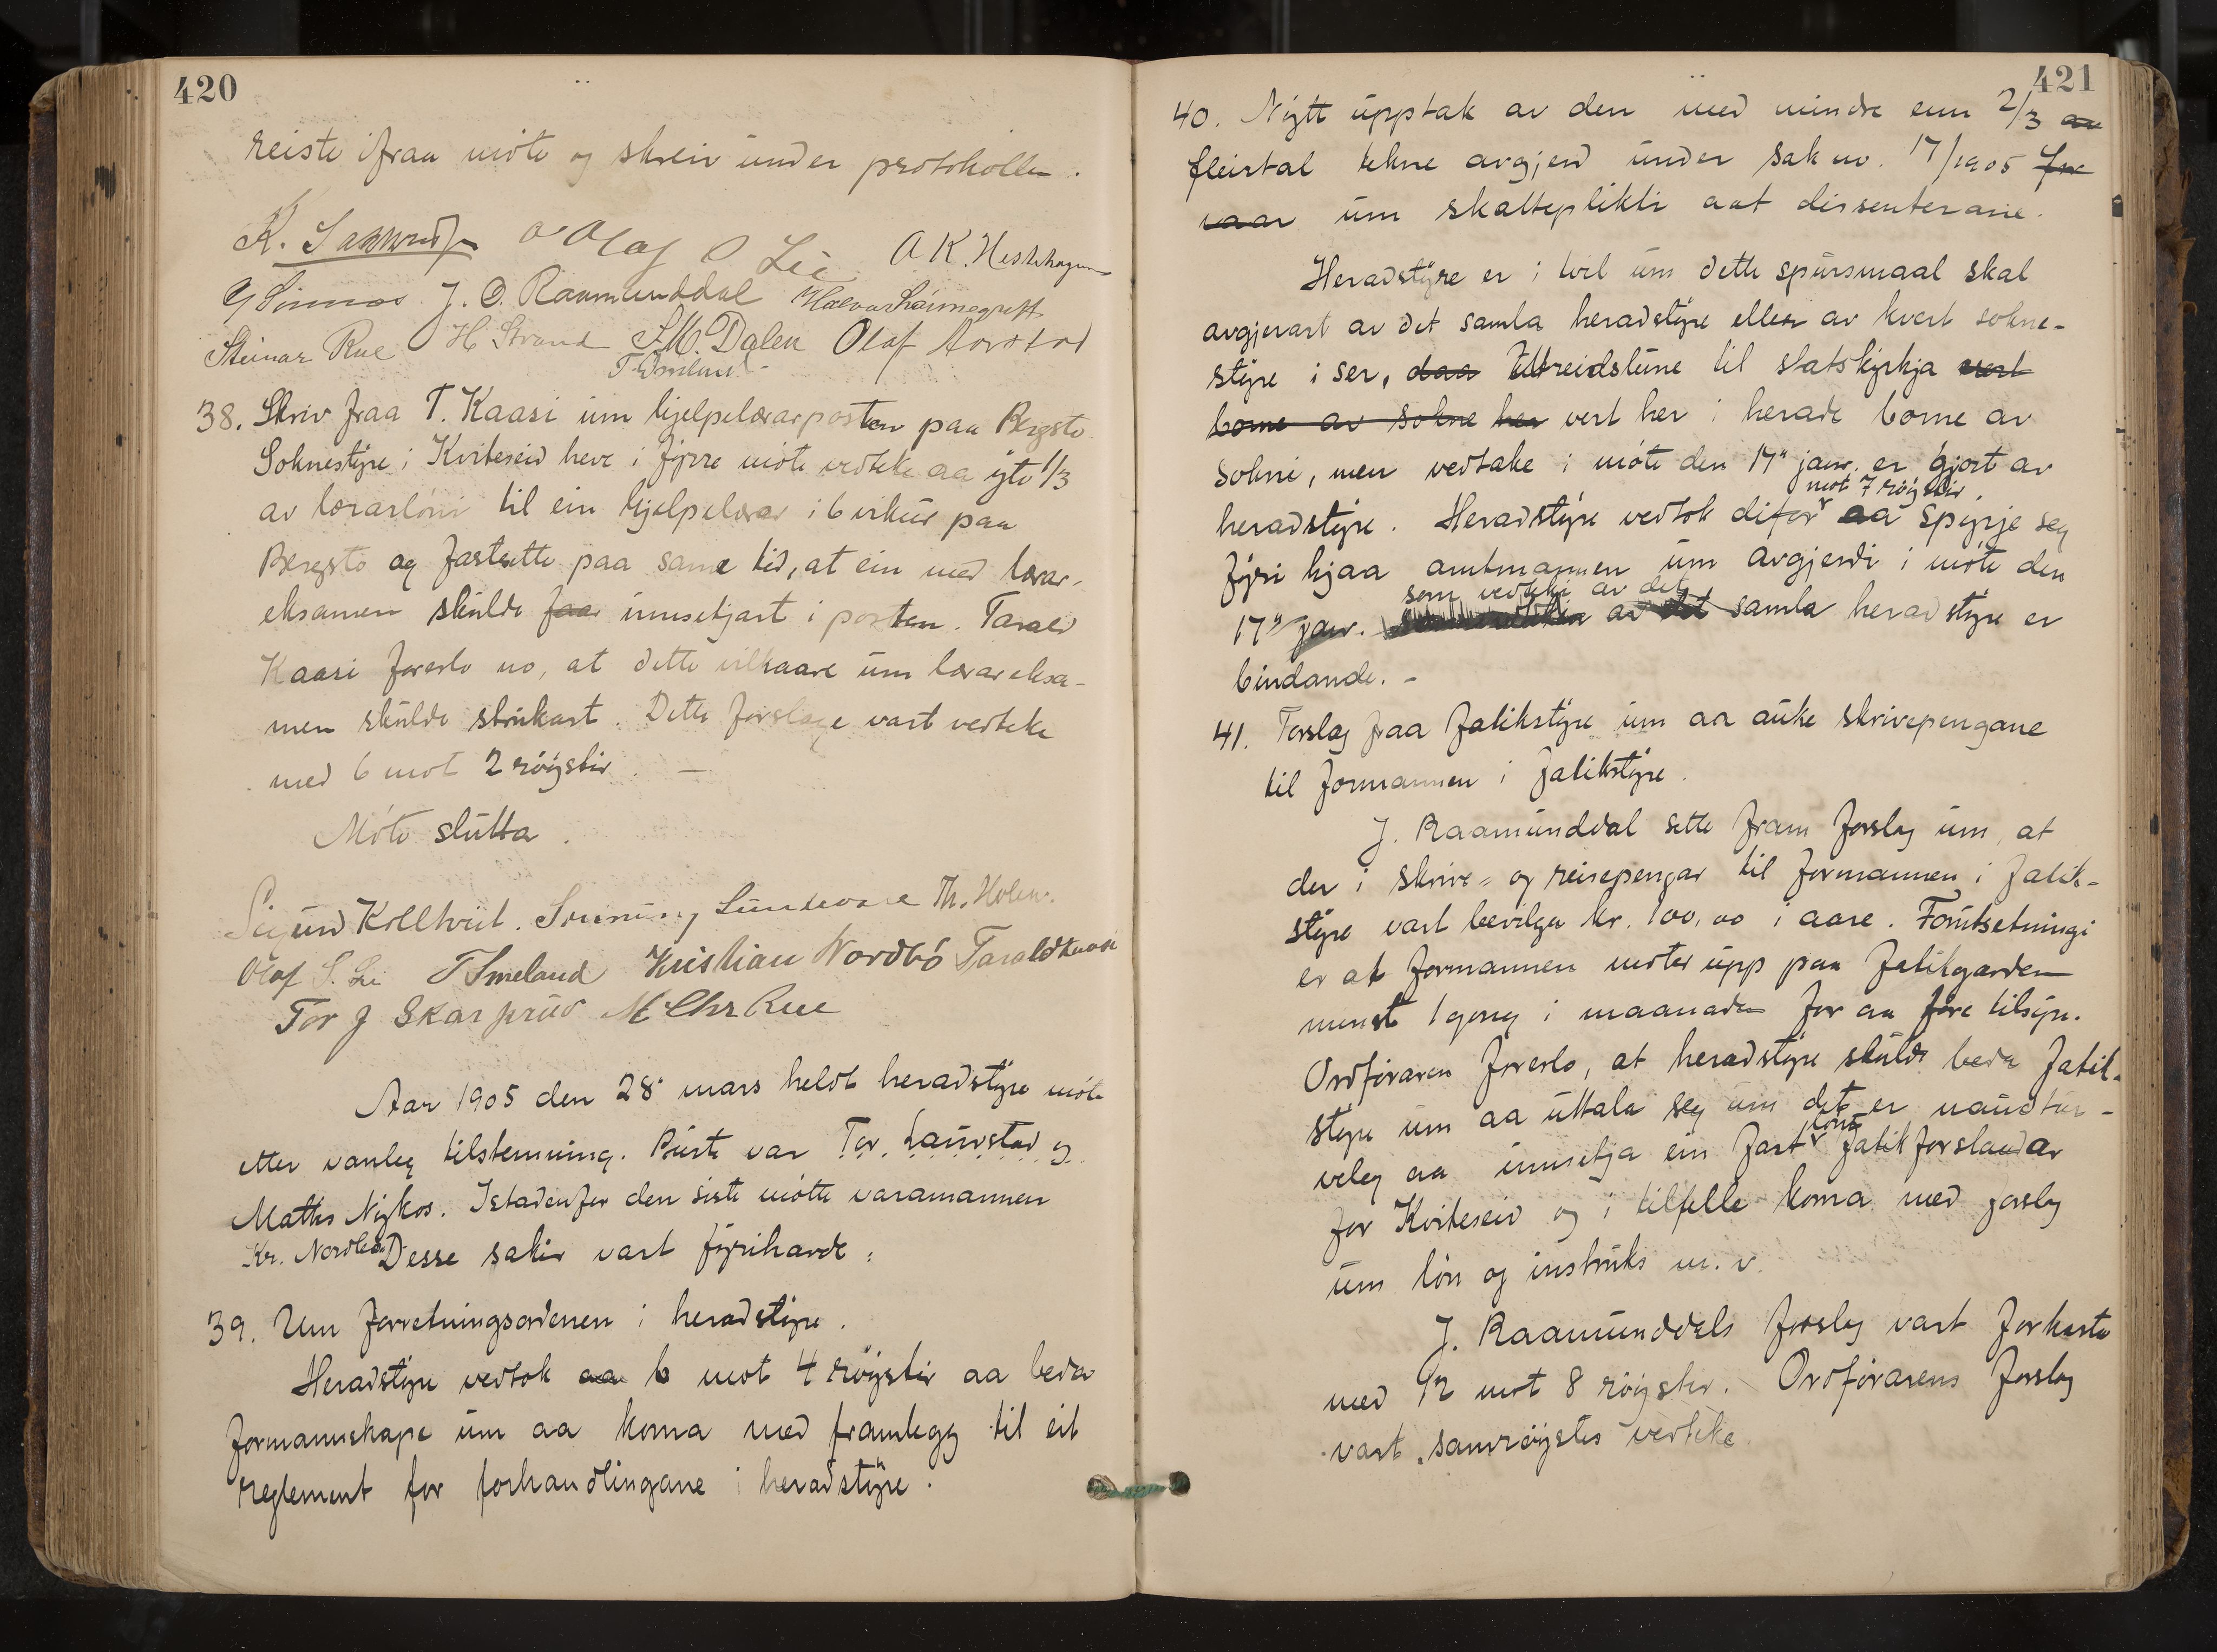 420
reiste ifraa møte og skreiv under protokollen.
Olaf S Lie A K. Heslehagen
J. O. Raamunddal
Steinar Rue H Strand S.M. Dalen Olaf
T. Omland
38. Skriv fraa T. Kaasi um hjelpelærarposten paa Bergstø
Soknestyre i Kviteseid heve i fyrre møte vedteke aa yte 1/3
av lærarløni til ein hjelpelærar i 6 vikur paa
Bergstø og fastsette paa same tid, at ein med lærar-
eksamen skulde faa innsetjast i posten. Tarald
Kaasi foreslo no, at dette vilkaare um lærareksa-
men skulde strukast. Dette forslage vart vedteke
med 6 mot 2 røyster. —
Møte slutta.
Th. Holen.
Olaf S. Lie T Smeland Kristian Nordbø Tarald Kaasi
Tor J Skarprud M Chr Rue
Aar 1905 den 28de mars heldt heradstyre møte
etter vanleg tilstemning. Burte var Tor Laurstad og
Mathis Nykos. Istadenfor den siste møtte varamannen
Kr. Nordbø. Desse saker vart fyrihavde:
39. Um forretningsordenen i heradstyre.
Heradstyre vedtok aa 6 mot 4 røyster aa beda
formannskape um aa koma med framlegg til eit
reglement for forhandlingane i heradstyre.
421
40. Nytt upptak av den med mindre enn 2/3 av
fleirtal tekne avgjerd under sak no. 17/1905 fra
vaar um skatteplikti aat dissenterane.
Heradstyre er i tvil um dette spursmaal skal
avgjerast av det samla heradstyre eller av kvert sokne-
styre i ser, daa Utreidslune til statskyrkja vert
borne av sokne her vert her i herade borne av
Sokni, men vedtake i møte den 17de janr. er gjort av
mot 7 røyster
heradstyre. Heradstyre vedtok difor aa spyrje seg
fyri hjaa amtmannen um avgjerdi i møte den
som vedteki av det
17de janr. av det samla heradstyre er
bindande. –
41. Forslag fraa fatikstyre um aa auke skrivepengane
til formannen i fatikstyre.
J. Raamunddal sette fram forslag um, at
der i skrive- og reisepengar til formannen i fatik-
styre vart bevilga kr. 100,00 i aare. Forutsetningi
er at formannen møter upp paa fatikgarden
minst 1 gong i maanaden for aa føre tilsyn.
Ordføraren foreslo, at heradstyre skulde beda fatik-
styre um aa uttala seg um det er naudtur-
lønt
veleg aa innsetja ein fast fatikforstandar
for Kviteseid og i tilfelle koma med forslag
um løn og instruks m. v.
J. Raamunddals forslag vart forkasta
med 12 mot 8 røyster. Ordførarens forslag
vart samrøystes vedteke.